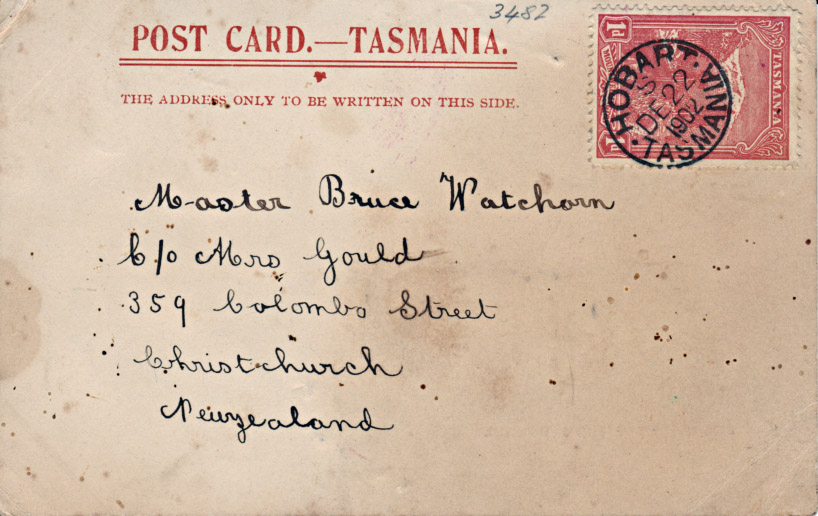 3482
POST CARD.—TASMANIA.
THE ADDRESS ONLY TO BE WRITTEN ON THIS SIDE.
1d
TASMANIA
HOBART · TASMANIA
S
DE 22
1902
Master Bruce Watchorn
C/o Mrs Gould
359 Colombo Street
Christchurch
Newzealand